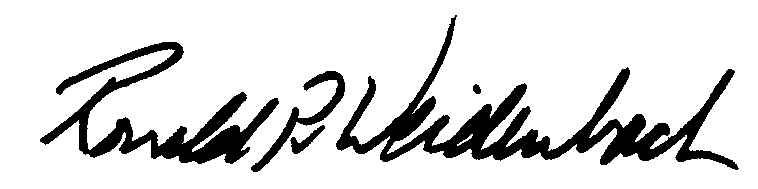 Ronald P. Weidenbach